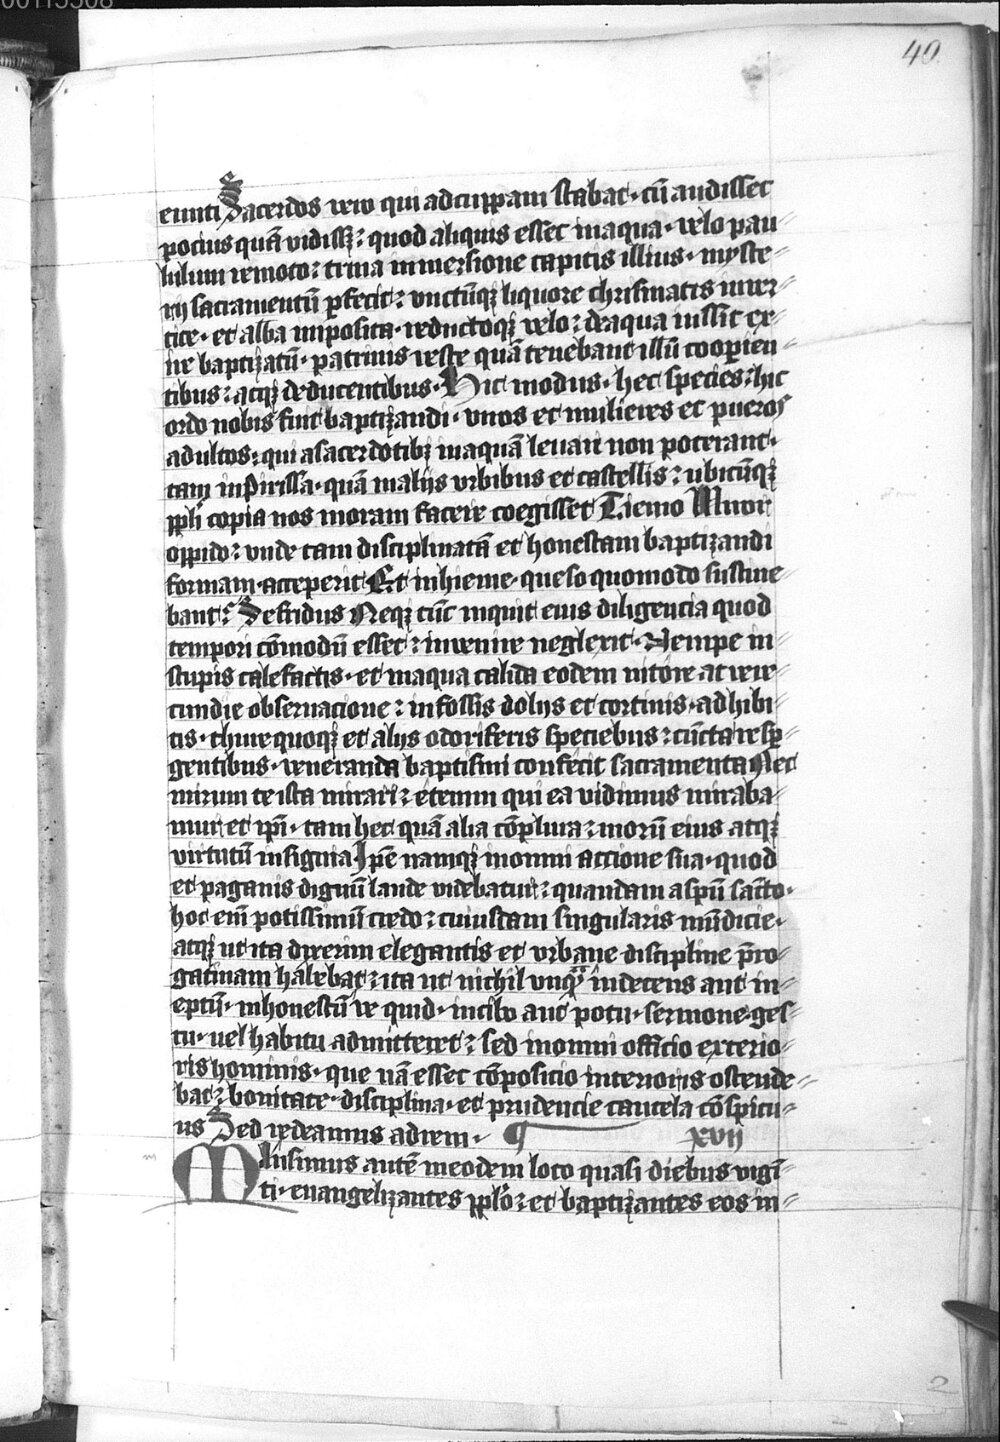 00115508
40
eunti Sacerdos vero qui adcuppam stabat · cū audisset
pocius quā vidissꝫ : quod aliquis esset inaqua · velo pau⸗
lulum remoto : trina inmersione capitis illius · myste⸗
rij sacramentū ꝑfecit : vnctūqꝫ liquore chrismatis inver⸗
tice · et alba imposita · reductoqꝫ velo : deaqua iussit ex⸗
ire baptiȝatū · patrinis veste quā tenebant illū cooperien⸗
tibus : atqꝫ deducentibus · Hic modus · hec species : hic
ordo nobis fuit baptiȝandi · viros et mulieres et pueros
adultos : qui asacerdotibꝫ inaquā levari non poterant ·
tam inPirissa · quā inalijs vrbibus et castellis : ubicūqꝫ
ppli copia nos moram facere coegisset Tiemo Miror
oppido : vnde tam disciplinatā et honestam baptiȝandi
formam · acceperit Et inhieme · queso quomodo sustine⸗
bant : Sefridus Neqꝫ tūc inquit eius diligencia quod
tempori cōmodū esset : invenire neglexit · Nempe in
stupis calefactis · et inaqua calida eodem nitore ac vere⸗
cundie observacione : infossis dolijs et cortinis · adhibi⸗
tis · thure quoqꝫ et alijs odoriferis speciebus : cūcta resꝑ⸗
gentibus · veneranda baptismi confecit sacramenta Nec
mirum te ista mirari : etenim qui ea vidimus miraba⸗
mur et ipī · tam hec quā alia cōplura : morū eius atqꝫ
virtutū insignia Ipē namqꝫ inomni accione sua · quod
et paganis dignū laude videbatur : quandam aspū sācto ·
hoc enī potissimū credo : cuiusdam singularis mūdicie ·
atqꝫ ut ita dixerim elegantis et vrbane discipline p̄ro⸗
gativam habebat : ita ut nichil unqꝫ indecens aut in⸗
eptū · inhonestū ve quid · incibo aut potu · sermone · ges⸗
tu · vel habitu admitteret : sed inomni officio exterio⸗
ris hominis · que nā esset cōposicio interioris ostende⸗
bat : bonitate · disciplina · et prudencie cautela cōspicu⸗
us Sed redeamus adrem · ¶ xvij
m
Mansimus autē ineodem loco quasi diebus vigī⸗
ti · euangeliȝantes pplo : et baptiȝantes eos in⸗
2